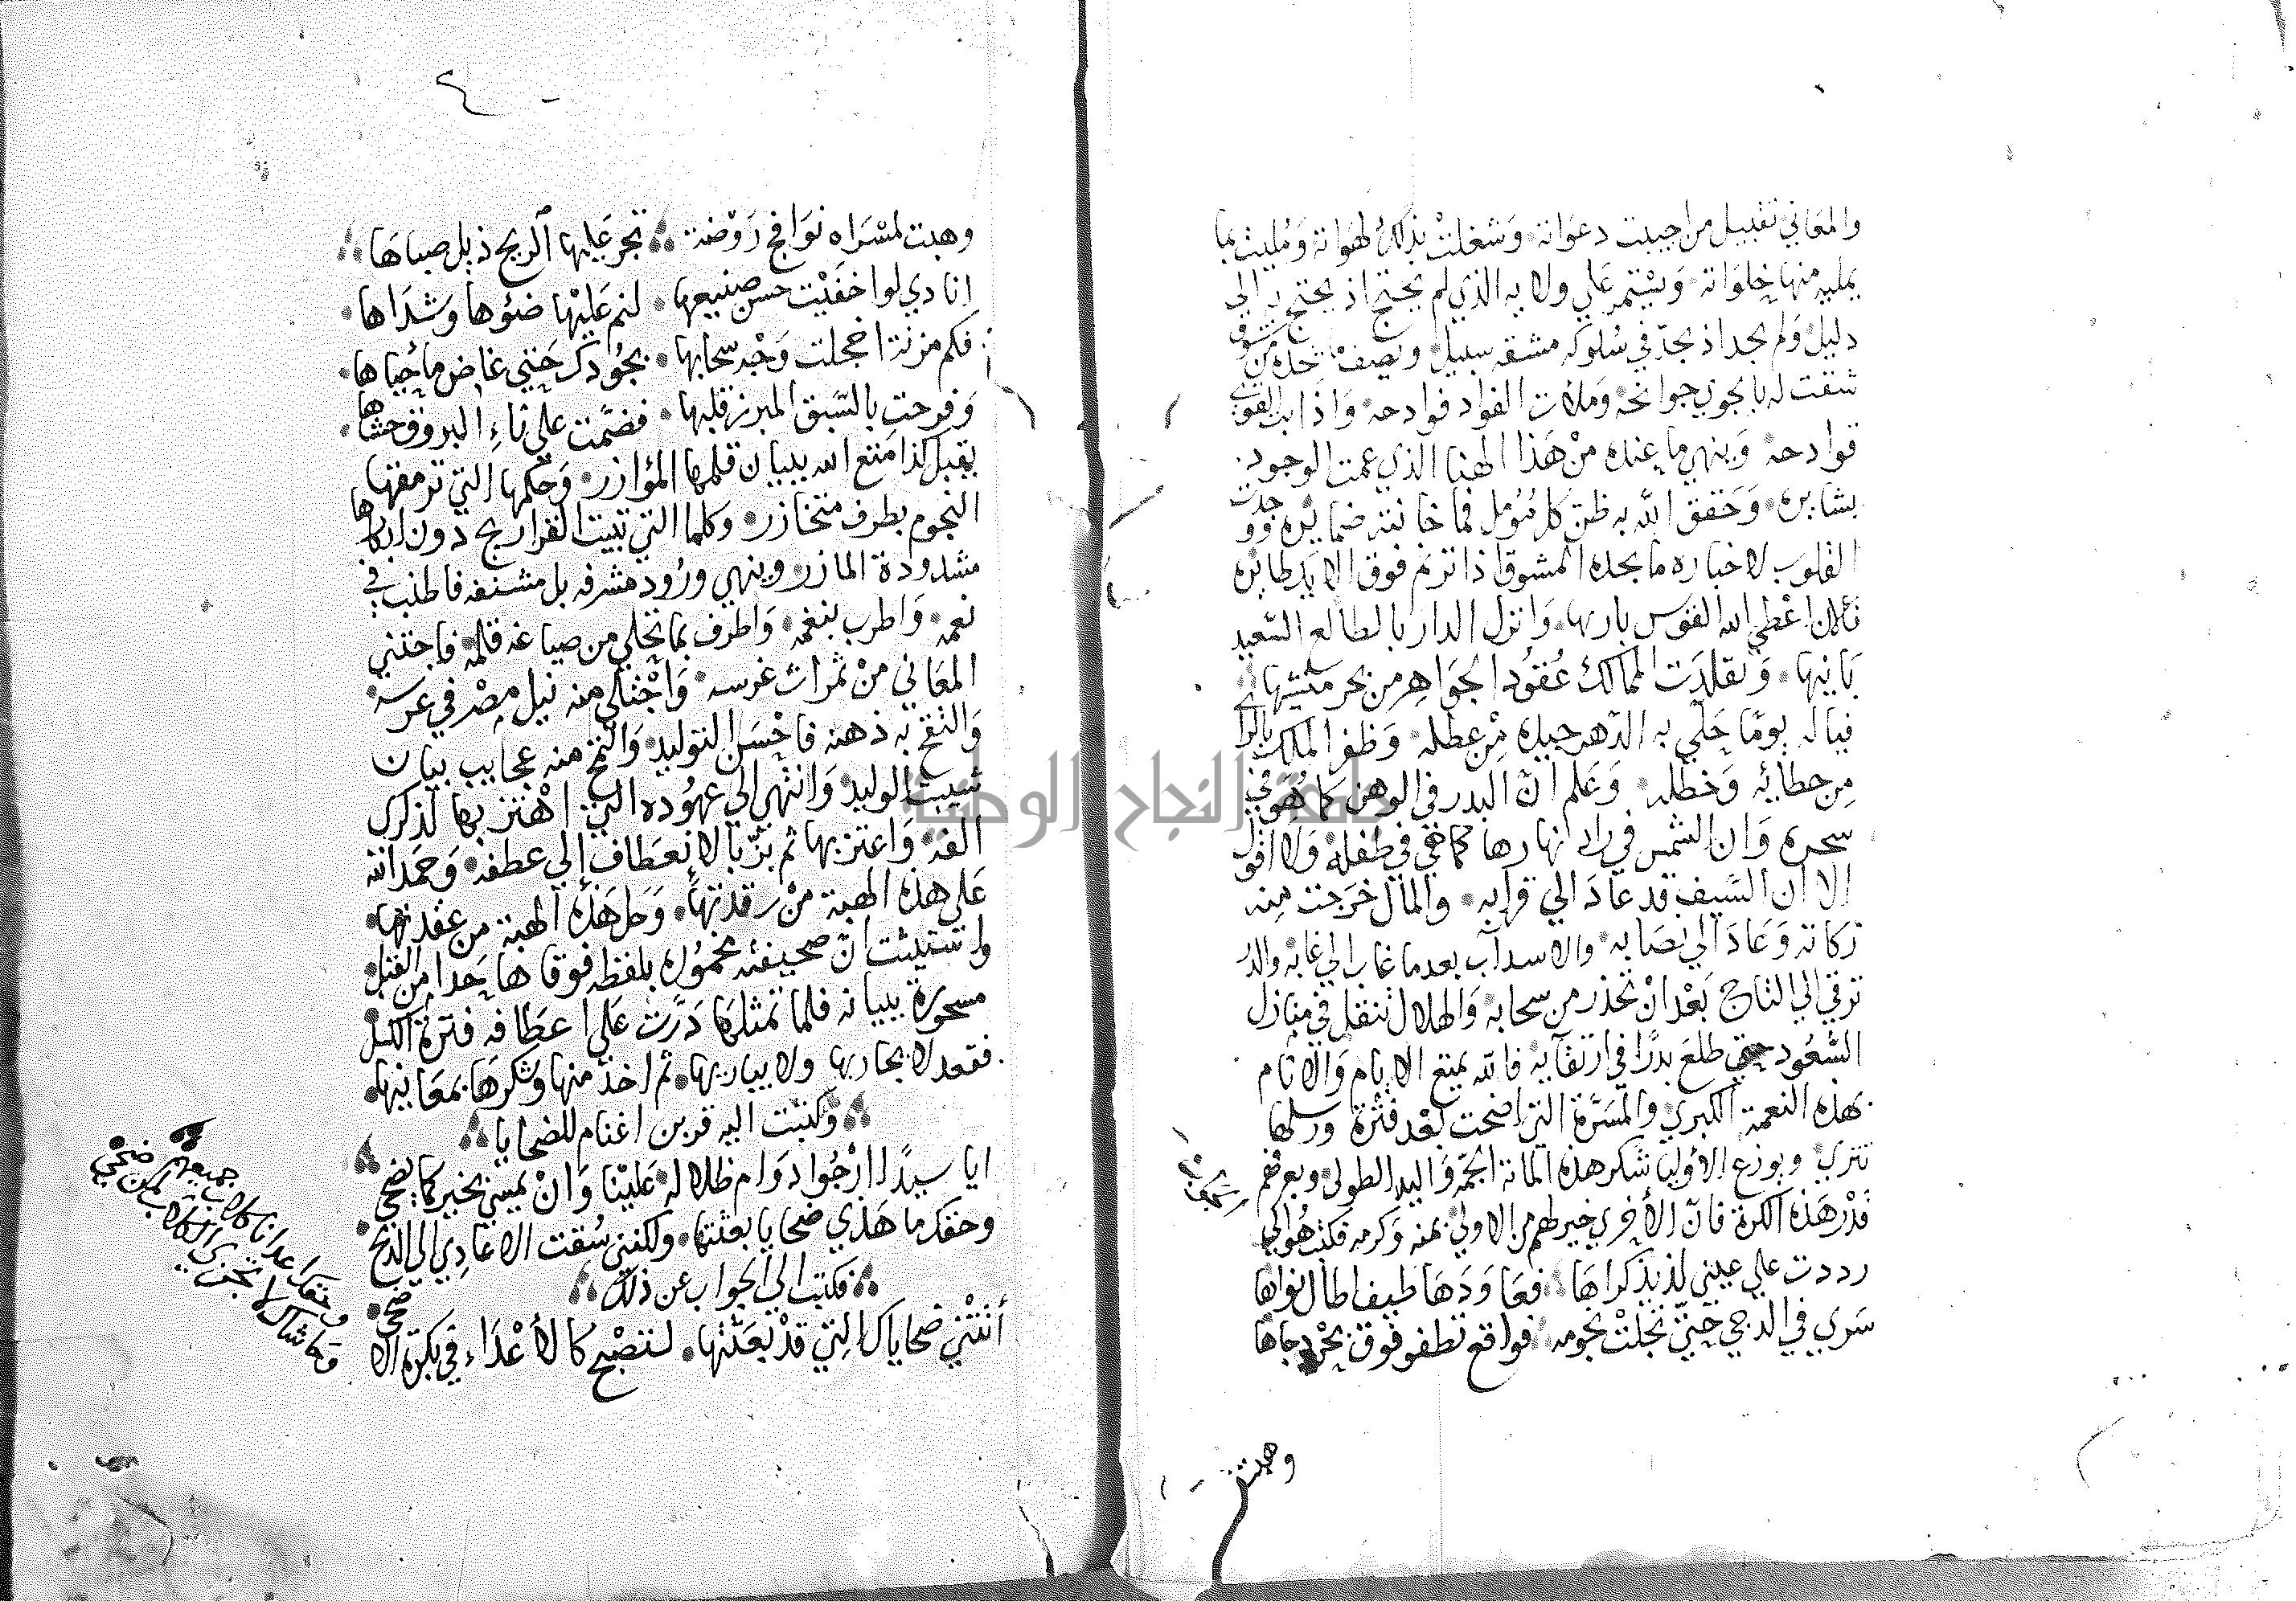 والمعاني تقبيل من اجيبت دعواته وشغلت بذلك لهواته ومليت بما
يمليه منها خلواته ويستمر علي ولايه الذي لم يحتج اذ يحتج به الى
دليل ولم يجد اذ يجد في سلوكه مشقه سبيل ويصف شوق
شقت له بالجوي جوانحه وملات الفواد فوادحه واذابت القوي
قوادحه وينهي ما عنده من هذا الهنا الذي عمت الوجود
بشايره وحقق الله به ظن كل مؤمل فما خانته ضمايره ووجدت
القلوب لاخباره ما يجده المشوق اذا ترنم فوق الايك طائره
الان اعطي الله القوس باريها وانزل الدار بالطالع السعيد
بانيها وتقلدت الممالك عقود الجواهر من بحر منشيها
فياله يوما حلي به الدهر جيده من عطله وظفر الملك بالرأي
من خطائه وخطله وعلم ان البدر في الوهن كما هو في
سحره وان الشمس في راد نهارها كما هي في طفله ولا اقول
الا ان السيف قد عاد الي قرابه والمال خرجت منه
زكاته وعاد الي نصابه والاسد آب بعدما غاب الي غابه والدر
ترقي الي التاج بعد ان تحذر من سحابه والهلال تنقل في منازل
السعود حتي طلع بدرا في ارتقايه فالله يمتع الايام والانام
بهذه النعمة الكبري والمسرة التي اضحت بعد فترة ورسلها
تتري ويوزع الأوليا شكر هذه المانة الجمة واليد الطولي ويعرفهم
قدر هذه الكرة فان الأخري خير لهم من الاولي بمنه وكرمه فكتب هو الي
رددت علي عيني لذيذ كراها فعاودها طيف اطال نواها
سري في الدجي حتي تجلت نجومه فواقع تطفو فوق بحر دجاها
وهبت
وهبت لمسراه نوافح روضة تجر عليها الريح ذيل صباها
انادي لو اخفيت حسن صنيعها لنم عليها ضوها وشذاها
فكم مزنة اخجلت وجه سحابها بجودك حتي غاض ما حباها
وفرحت بالسبق المبرز قلبها فضمت علي نار البروق حشاها
يقبل كذا متع الله ببيان قلمها المؤازر وحكمها التي ترمقها
النجوم بطرف متخازر وكلما التي تبيت القرايح دون ابكارها
مشدودة المازر وينهي ورود مشرفه بل مشنفه فاطنب في
نعمه واطرب بنغمه واطرف بما تحلي من صياغة قلمه فاجتني
المعاني من ثمرات غرسه واجتلي منه نيل مصر في عرسه
والتقح به ذهنه فاحسن التوليد والتمح منه عجايب بيان
شيبت الوليد وانتهي الي عهوده التي اهتز بها لذكري
الفه واعتز بها ثم بز بالانعطاف إلي عطفه وحمد الله
علي هذه الهبة من رقدتها وحل هذه الهبة من عقدتها
واستثبت ان صحيفته مخموره بلفظه فوقاها حدا من القتل
مسحورة ببيانه فلما تمثلها درت علي اعطافه فترة الكسل
فقعد لا يجاريها ولا يباريها ثم اخذ منها وشكرها بمعانيها
وكتبت اليه قرين اغنام للضحايا
ايا سيدا ارجوا دوام ظلاله علينا وان يمسي بخير كما يضحي
وحقك ما هذي ضحايا بعثتها ولكنني سقت الاعادي الي الذبح
فكتب الي الجواب عن ذلك
أتتني ضحاياك التي قد بعثتها لتصبح كالأعداء في بكرة الاضحي
وحقك اعدانا كلاب جميعهم
وحاشاك لا تجزي الكلاب لمن ضحي